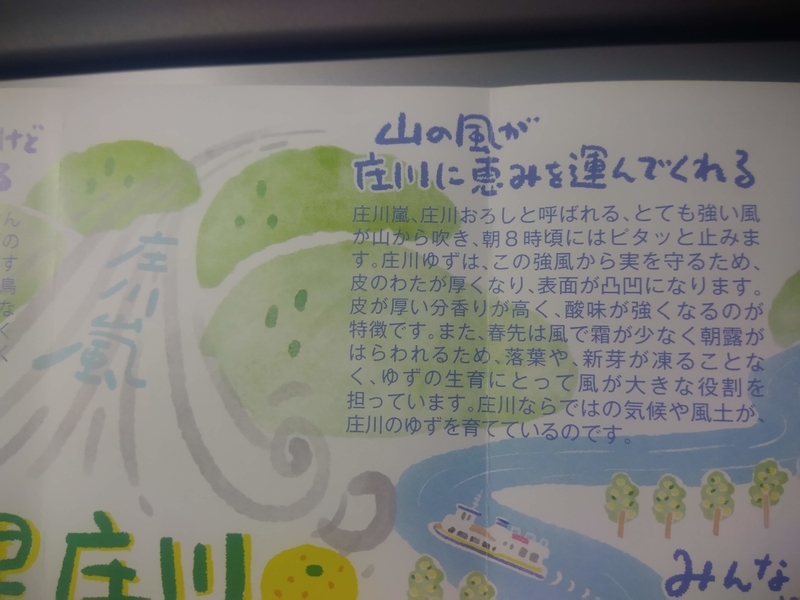 けど
る
んのす鳥なくく
庄川嵐
山の風が
庄川に恵みを運んでくれる
庄川嵐、庄川おろしと呼ばれる、とても強い風
が山から吹き、朝8時頃にはピタッと止みま
す。庄川ゆずは、この強風から実を守るため、
皮のわたが厚くなり、表面が凸凹になります。
皮が厚い分香りが高く、酸味が強くなるのが
特徴です。また、春先は風で霜が少なく朝露が
はらわれるため、落葉や、新芽が凍ることな
く、ゆずの生育にとって風が大きな役割を
担っています。庄川ならではの気候や風土が、
庄川のゆずを育てているのです。
庄川
みんな